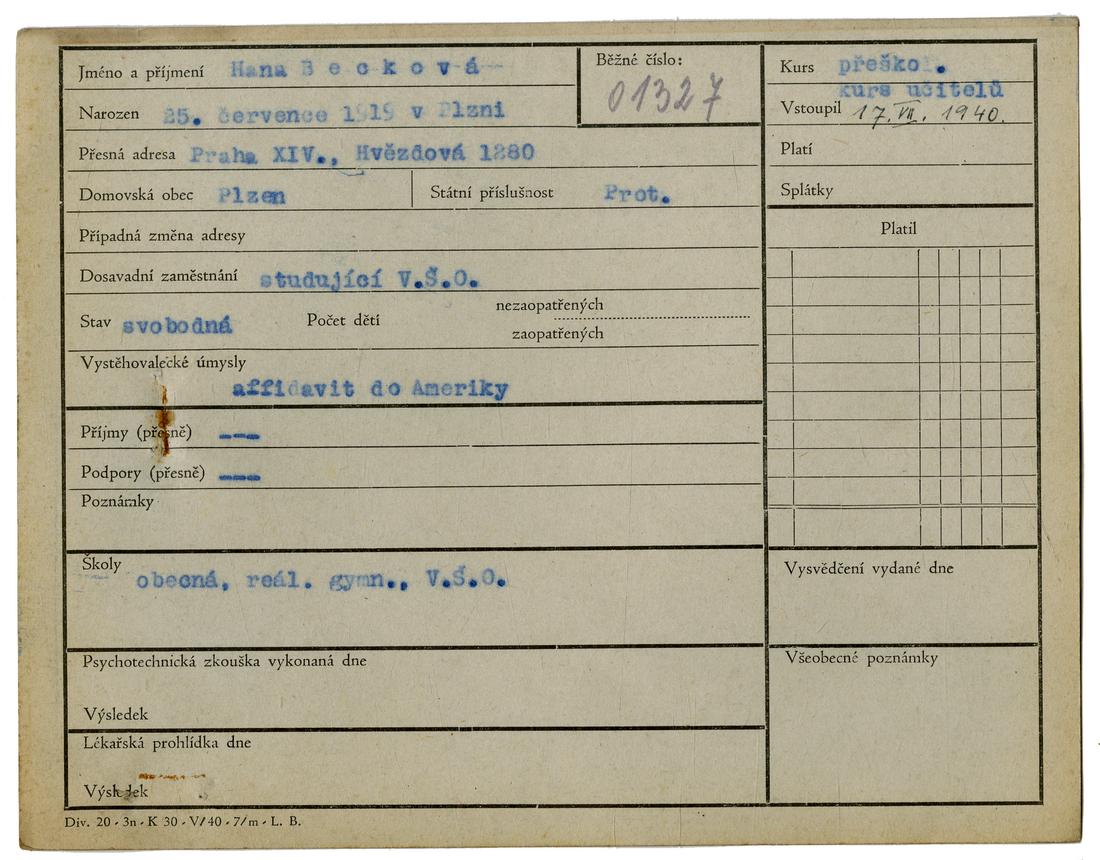 Jméno a příjmení Hana Becková
Běžné číslo:
01327
Narozen 25. července 1919 v Plzni
Přesná adresa Praha XIV., Hvězdová 1880
Domovská obec Plzen Státní příslušnost Prot.
Případná změna adresy
Dosavadní zaměstnání studující V.Š.O.
Stav svobodná Počet dětí nezaopatřených
zaopatřených
Vystěhovalecké úmysly
affidavit do Ameriky
Příjmy (přesně) ---
Podpory (přesně) ---
Poznámky
Školy
obecná, reál. gymn., V.Š.O.
Psychotechnická zkouška vykonaná dne
Výsledek
Lékařská prohlídka dne
Výsledek
Kurs přeškol.
kurs učitelů
Vstoupil 17. VII. 1940.
Platí
Splátky
Platil
Vysvědčení vydané dne
Všeobecné poznámky
Div. 20 - 3n - K 30 - V/40 - 7/m - L. B.